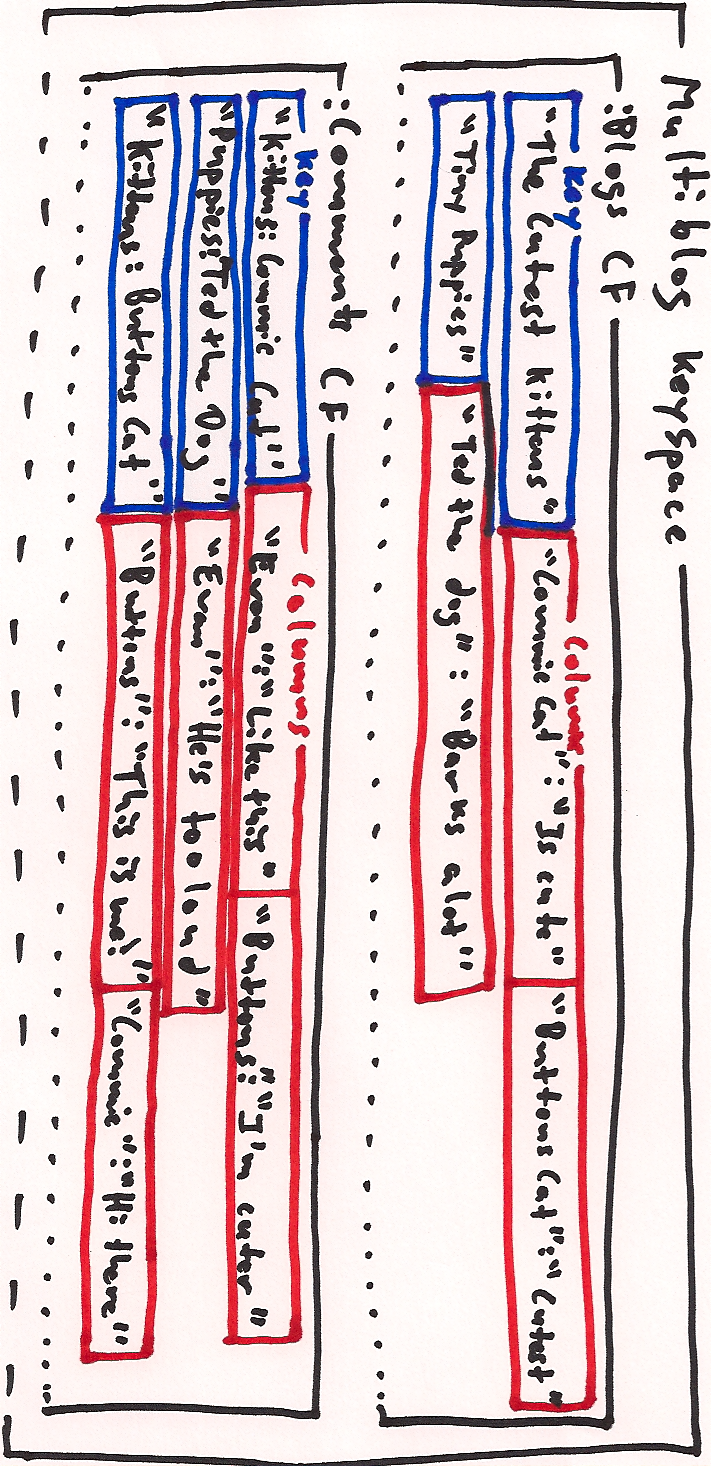 Multiblog Keyspace
:Blogs CF
Key Columns
"The Cutest Kittens" "Commie Cat": "Is cute" "Buttons Cat": "Cutest"
"Tiny Puppies" "Ted the dog": "Barks alot"
:Comments CF
Key Columns
"Kittens: Commie Cat" "Evan": "Like this" "Buttons": "I'm cuter"
"Puppies:Ted the Dog" "Evan": "He's too loud"
"Kittens: Buttons Cat" "Buttons": "This is me!" "Commie": "Hi there"